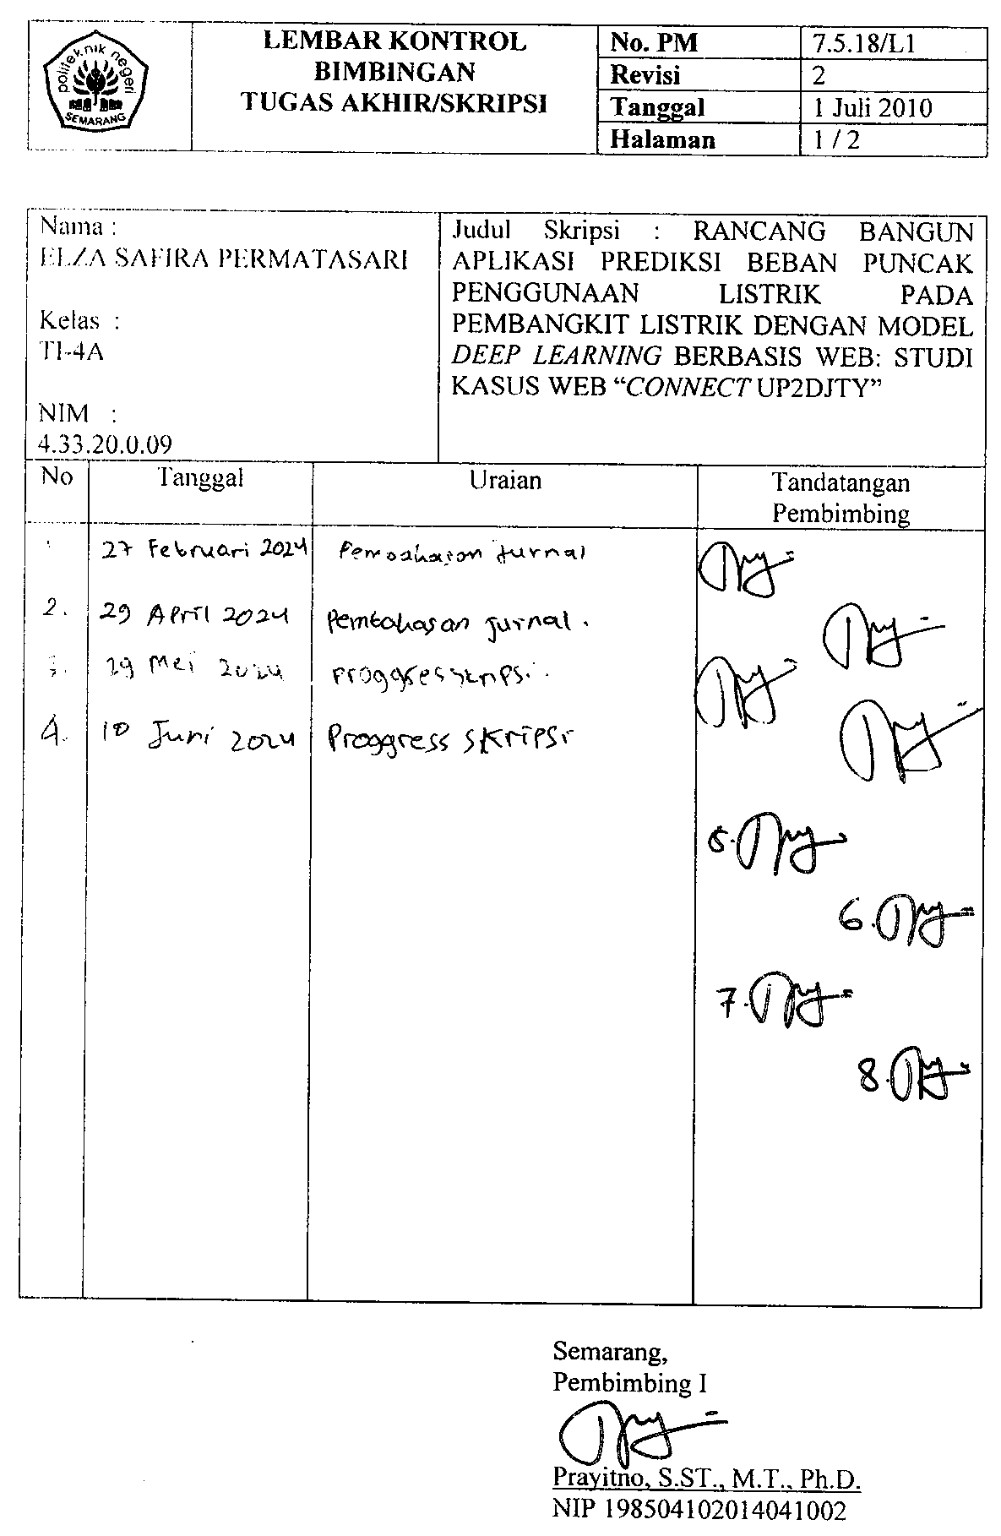 politeknik negeri
SEMARANG
LEMBAR KONTROL
BIMBINGAN
TUGAS AKHIR/SKRIPSI
No. PM 7.5.18/L1
Revisi 2
Tanggal 1 Juli 2010
Halaman 1 / 2
Nama :
ELZA SAFIRA PERMATASARI
Kelas :
TI-4A
NIM :
4.33.20.0.09
Judul Skripsi : RANCANG BANGUN
APLIKASI PREDIKSI BEBAN PUNCAK
PENGGUNAAN LISTRIK PADA
PEMBANGKIT LISTRIK DENGAN MODEL
DEEP LEARNING BERBASIS WEB: STUDI
KASUS WEB “CONNECT UP2DJTY”
No Tanggal Uraian Tandatangan
Pembimbing
1. 27 Februari 2024 Pembahasan jurnal
2. 29 April 2024 Pembahasan jurnal.
3. 29 Mei 2024 Proggres skripsi.
4. 10 Juni 2024 Proggress skripsi
5.
6.
7.
8.
Semarang,
Pembimbing I
Prayitno, S.ST., M.T., Ph.D.
NIP 198504102014041002